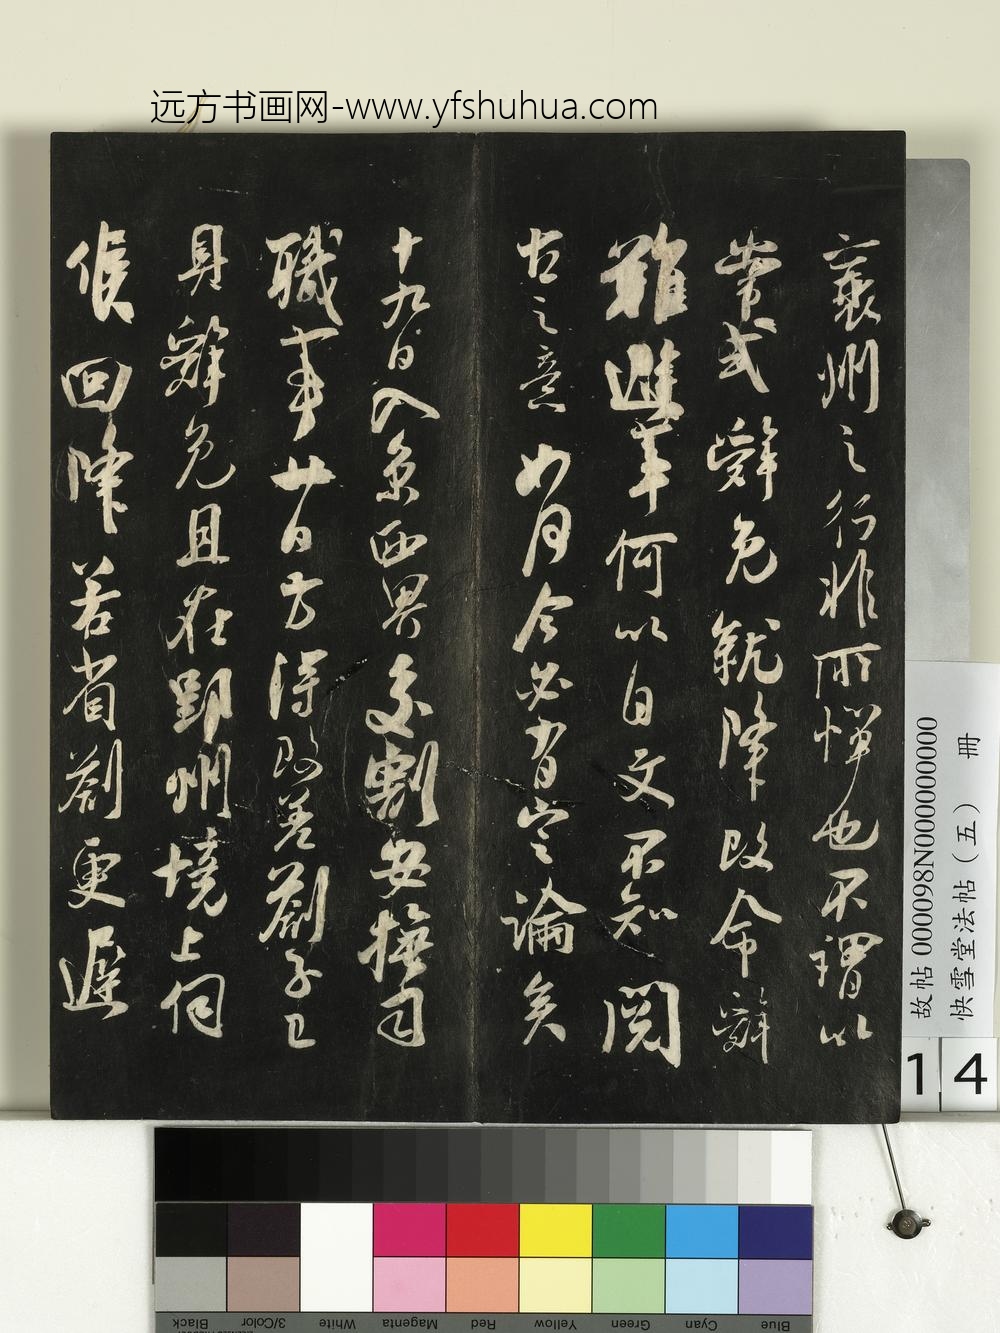 远方书画网-www.yfshuhua.com
襄州之行非所惮也不谓以
常式辭免就降改命辭
難避事何以自文不知閱
古之意如何今必有定論矣
十九日入京西界交割安撫司
職事廿一日方得改差劄子已
具辭免且在郢州境上伺
候回降若省劄更遲
故帖 000098N000000000
快雪堂法帖（五） 冊
14
Black
3/Color
White
Magenta
Red
Yellow
Green
Cyan
Blue